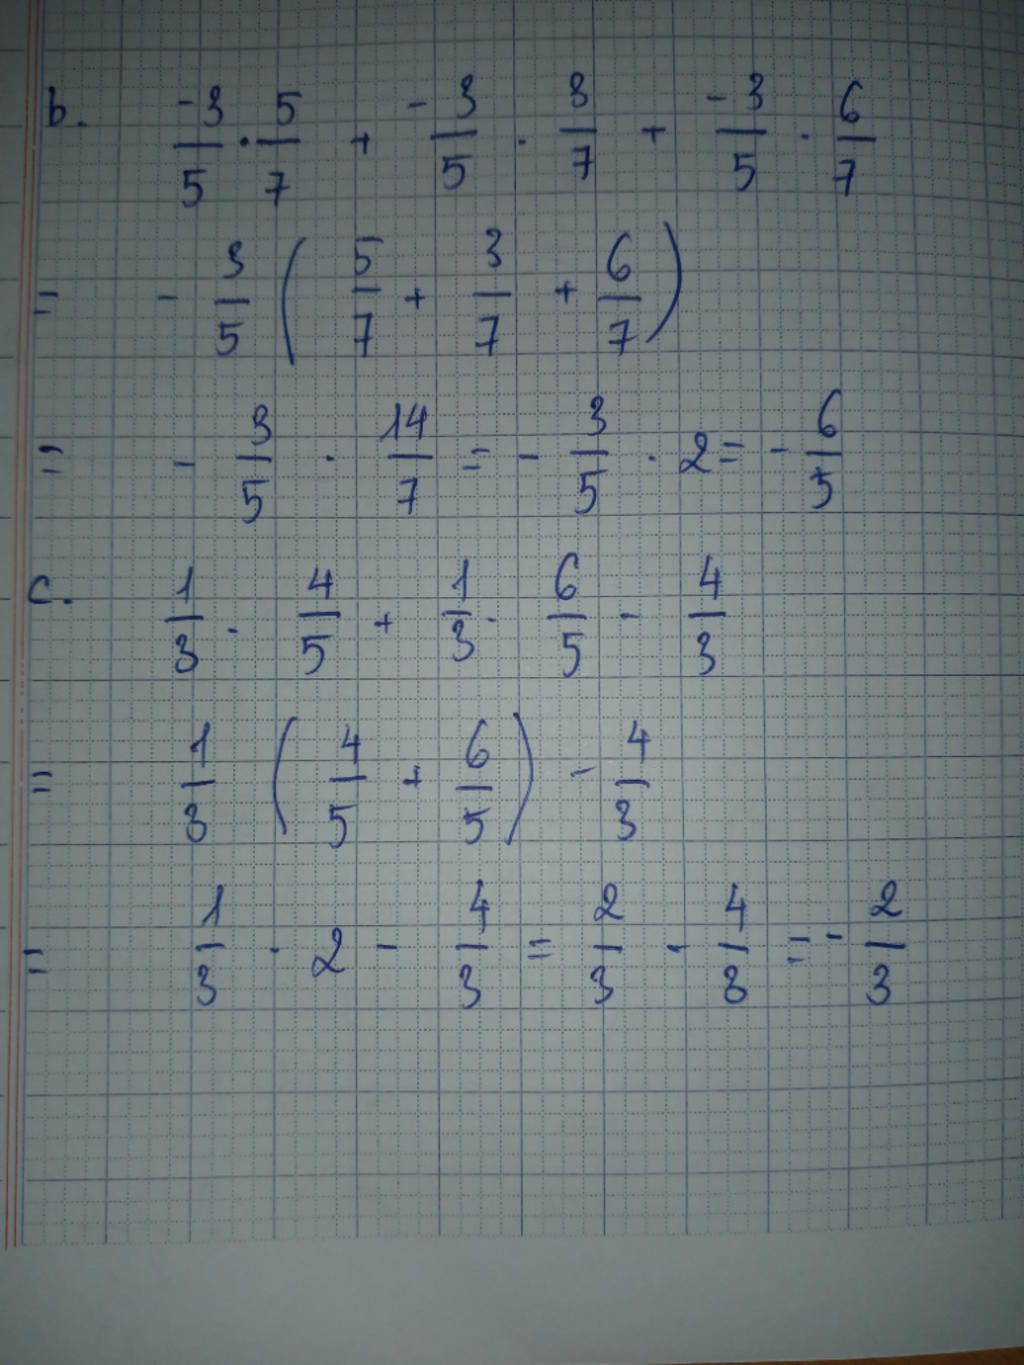 b. -3/5 · 5/7 + -3/5 · 3/7 + -3/5 · 6/7
= - 3/5 ( 5/7 + 3/7 + 6/7 )
= - 3/5 · 14/7 = - 3/5 · 2 = - 6/5
c. 1/3 · 4/5 + 1/3 · 6/5 - 4/3
= 1/3 ( 4/5 + 6/5 ) - 4/3
= 1/3 · 2 - 4/3 = 2/3 - 4/3 = - 2/3